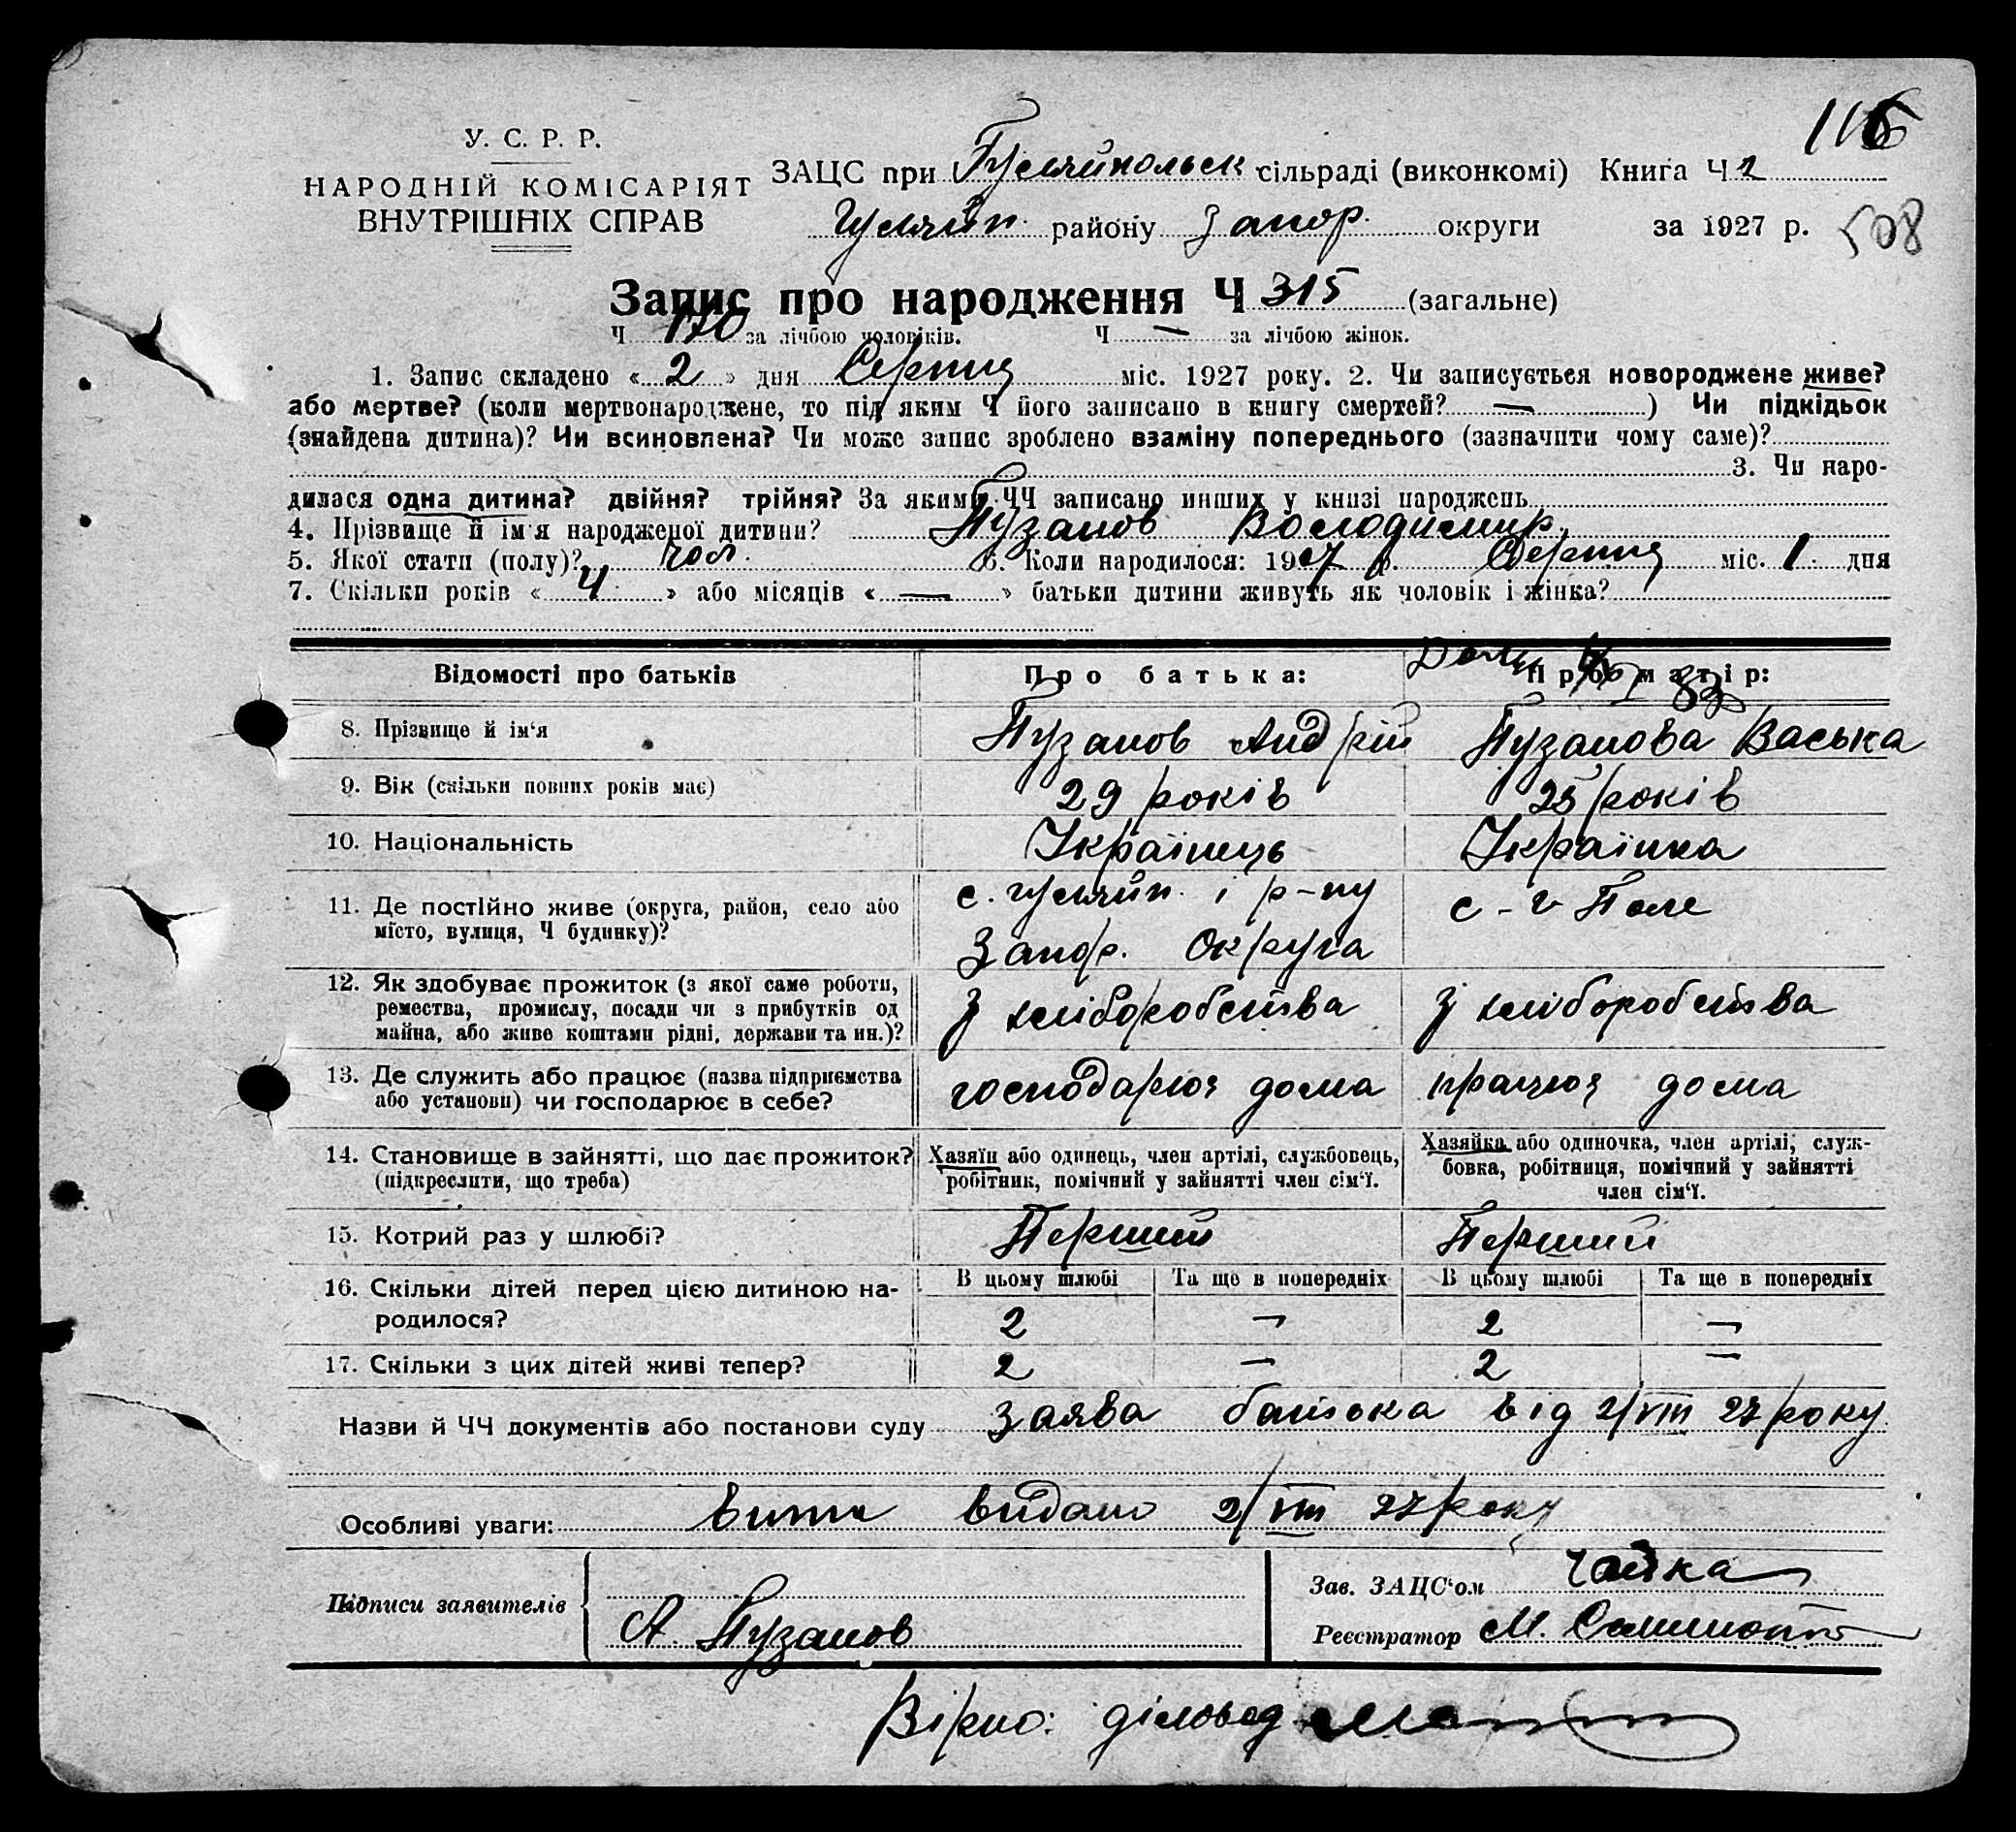 116
У. С. Р. Р.
НАРОДНІЙ КОМІСАРІЯТ
ВНУТРІШНІХ СПРАВ
ЗАЦС при Гуляйпольск сільраді (виконкомі) Книга Ч 2
Гуляйп. району Запор. округи за 1927 р.
508
Запис про народження Ч 315 (загальне)
Ч 170 за лічбою чоловіків. Ч — за лічбою жінок.
1. Запис складено « 2 » дня Серпня міс. 1927 року. 2. Чи записується новороджене живе?
або мертве? (коли мертвонароджене, то під яким Ч його записано в книгу смертей? — ) Чи підкідьок
(знайдена дитина)? Чи всиновлена? Чи може запис зроблено взаміну попереднього (зазначити чому саме)?
3. Чи наро-
дилася одна дитина? двійня? трійня? За якими ЧЧ записано инших у книзі народжень
4. Прізвище й ім'я народженої дитини? Пузанов Володимир.
5. Якої стати (полу)? чол. 6. Коли народилося: 1927 р. Серпня міс. 1 дня
7. Скільки років « 4 » або місяців « — » батьки дитини живуть як чоловік і жінка?
Відомості про батьків Про батька: Про матір:
8. Прізвище й ім'я Пузанов Андрій Пузанова Васька
9. Вік (скільки повних років має) 29 років 25 років
10. Національність Українець Українка
11. Де постійно живе (округа, район, село або місто, вулиця, Ч будинку)? с. Гуляйп. і р-ну с-Г-Поле
Запор. Округа
12. Як здобуває прожиток (з якої саме роботи,
ремества, промислу, посади чи з прибутків од
майна, або живе коштами рідні, держави та ин.)? З хліборобства З хліборобства
13. Де служить або працює (назва підприємства
або установи) чи господарює в себе? господарює дома працює дома
14. Становище в зайнятті, що дає прожиток?
(підкреслити, що треба)
Хазяїн або одинець, член артілі, службовець,
робітник, помічний у зайнятті член сім'ї.
Хазяйка або одиночка, член артілі, служ-
бовка, робітниця, помічний у зайнятті
член сім'ї.
15. Котрий раз у шлюбі? Перший Перший
16. Скільки дітей перед цією дитиною на-
родилося?
В цьому шлюбі Та ще в попередніх В цьому шлюбі Та ще в попередніх
2 — 2 —
17. Скільки з цих дітей живі тепер? 2 — 2 —
Назви й ЧЧ документів або постанови суду Заява батька від 2/VIII 27 року.
Особливі уваги: видано 2/VIII 27 року
Підписи заявителів
А. Пузанов
Зав. ЗАЦС'ом Чайка
Реєстратор М.
Вірно: діловод